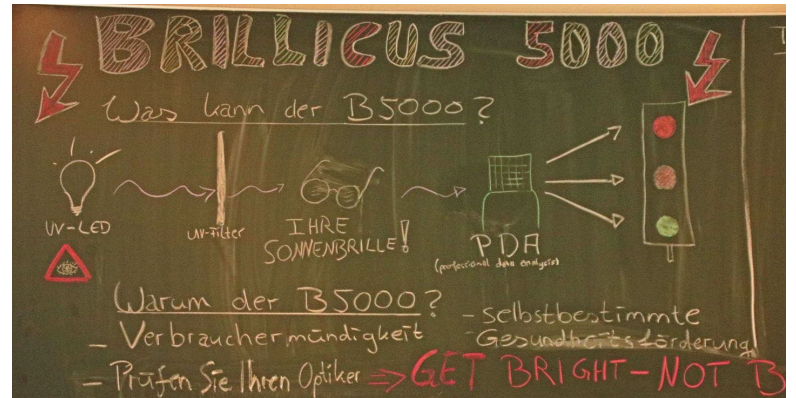 BRILLICUS 5000
Was kann der B5000?
UV-LED
UV-Filter
IHRE
SONNENBRILLE!
PDA
(professional data analysis)
Warum der B5000?
- Verbrauchermündigkeit
- Selbstbestimmte
Gesundheitsförderung
- Prüfen Sie Ihren Optiker => GET BRIGHT - NOT B